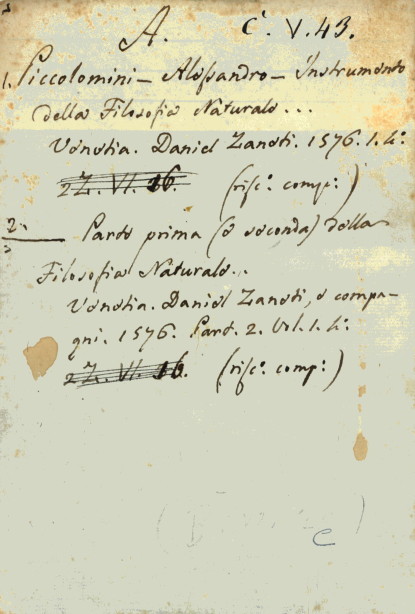 A. C. V. 43.
1. Piccolomini - Alessandro - Instrumento
della Filosofia Naturale...
Venetia. Daniel Zaneti. 1576. 1. 4°
2Z. VI. 16. (risc°. comp°:)
2. Parte prima (e seconda) della
Filosofia Naturale...
Venetia. Daniel Zaneti, e compa-
gni. 1576. Part. 2. Vol. 1. 4°
2Z. VI. 16. (risc°. comp°:)
C